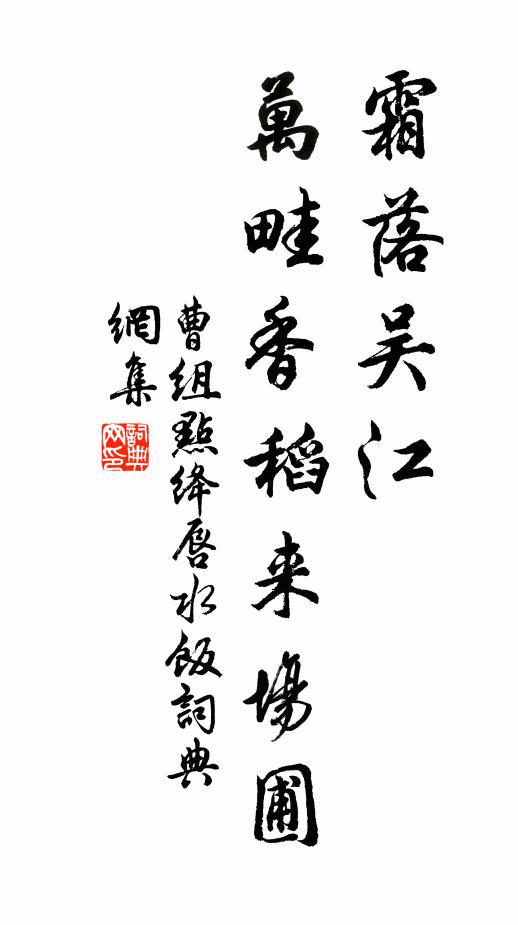 霜落吴江
萬畦香稻来場圃
曹组點绛唇水飯詞典
網集
詞典
网印